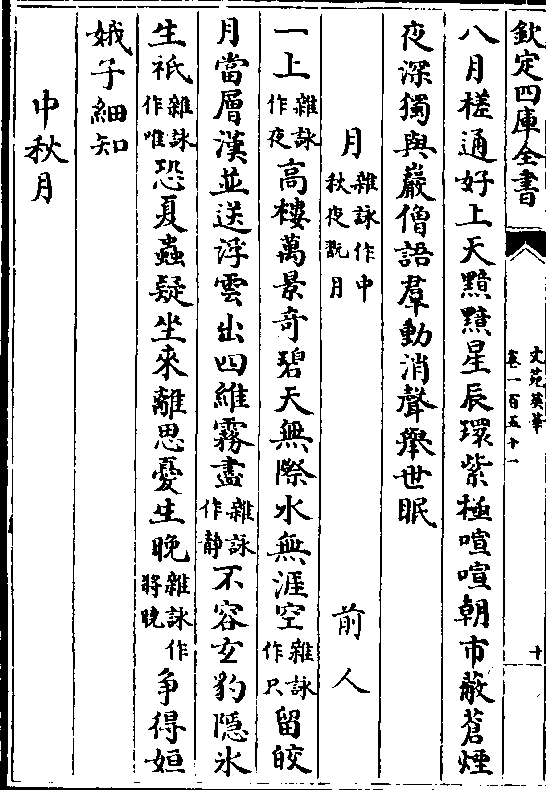 欽定四庫全書
文苑英華
卷一百五十一
十
八月槎通好上天黯黯星辰環紫極喧喧朝市蔽蒼煙
夜深獨與巖僧語羣動消聲舉世眠
月雜詠作中秋夜翫月 前人
一上雜詠作夜高樓萬景奇碧天無際水無涯空雜詠作只留皎
月當層漢並送浮雲出四維霧盡雜詠作静不容玄豹隱氷
生祇雜詠作唯恐夏蟲疑坐來離思憂生晚雜詠作將曉争得姮
娥子細知
中秋月